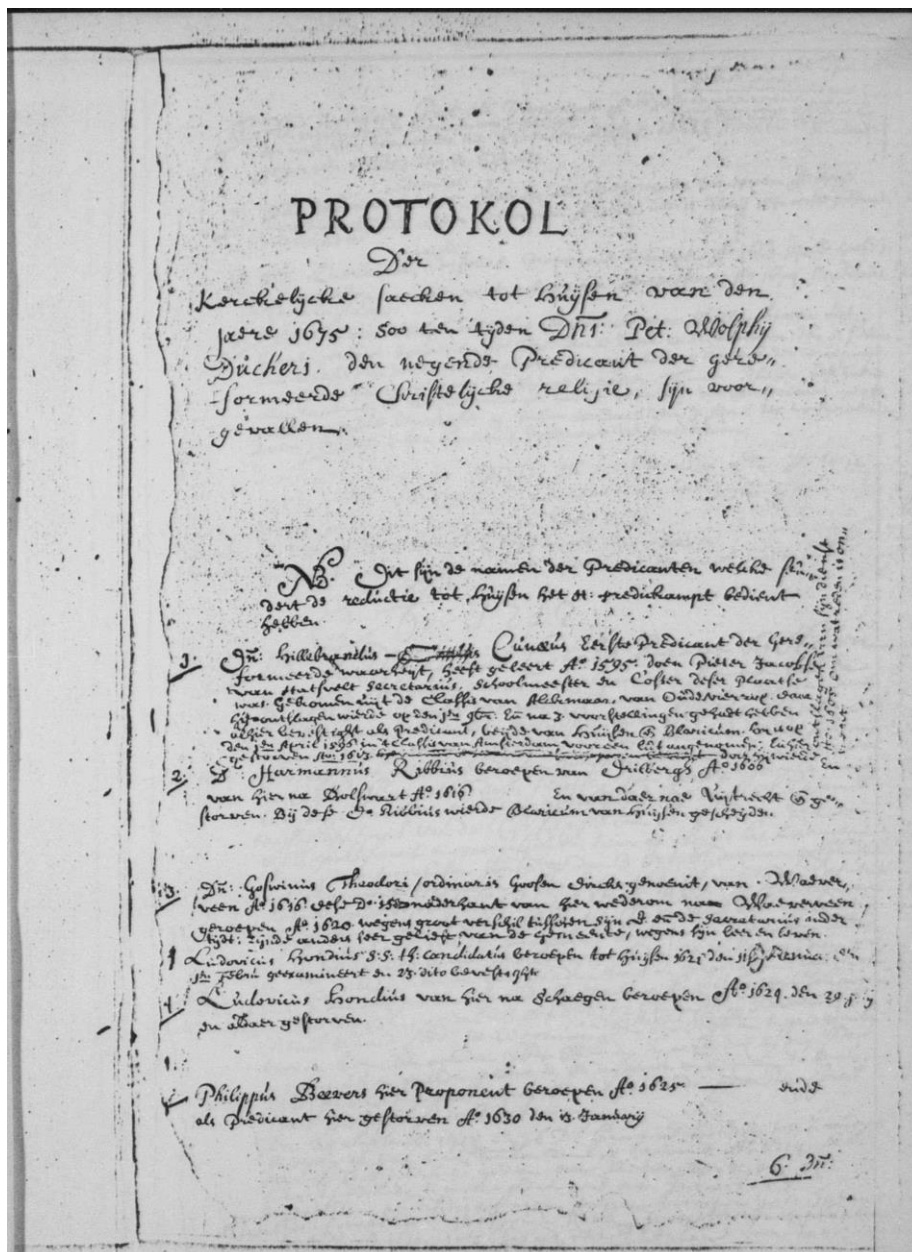 PROTOKOL
Der
Kerckelycke saecken tot Huÿsen van den
jaere 1675: soo ten tyden Dni: Pet: Wolphy
Duckeri, den negende Predicant der gere„
-formeerde Christelycke religie, sijn voor„
gevallen.
NB. Dit sijn de namen der Predicanten welcke sin„
dert de reductie tot Huijsen het predickampt bedient
hebben.
1. Dn: Hillebrandus Cunæus Eerste Predicant der Gere„
formeerde waarheijt, heeft geleert Aº 1595. doen Pieter Jacobse
van secretarius, schoolmeester en Coster deser plaetse
was. gekomen uijt de Classis van Alckmaar, van
ontslagen wierde op den En na 3. voorstellingen gehadt hebben
alhier bevestight als predicant, beijde van Huijsen & Blaricum.
den 1en April 1596 in 't Classis van Amsterdam voor een lidt angenomen,
gestorven
2. D: Harmannus Ribbius beroepen van Aº 1606 En
van hier na Bolswart Aº 1616 En van daer nae Uijtrecht & ge„
storven. Bij dese Do Ribbius wierde Blaricum van Huijsen gescheijden.
3. Dn: Goswinus Theodori / ordinaris Goosen Dircks genoemt, van Waever„
veen Aº 1616 dese Do is naderhant van hier wederom na Waeverveen
geroepen Aº 1620 wegens groot verschil tusschen sijn E en de Secretarius inder
tijdt: zijnde anders seer gelieft van de gemeente, wegens sijn leer en leven.
Ludovicus Hondius S.S. th: candidatus beroepen tot Huijsen 1621 den
geexamineert en 23. dito bevestight
4. Ludovicus Hondius van hier na Schaegen beroepen Aº 1624. den
en aldaer gestorven.
Philippus Beevers hier Proponent beroepen Aº 1625 — ende
als Predicant hier gestorven Aº 1630 den 13. January
6. Dn: